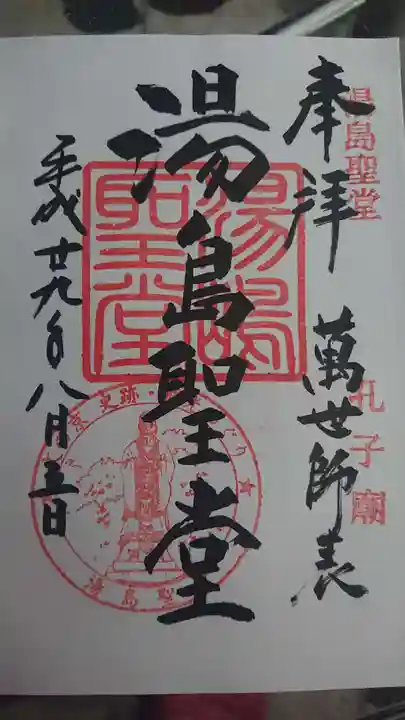 湯島聖堂
孔子廟
奉拝
萬世師表
湯島聖堂
湯島聖堂
平成廿九年八月五日
史跡
湯島聖